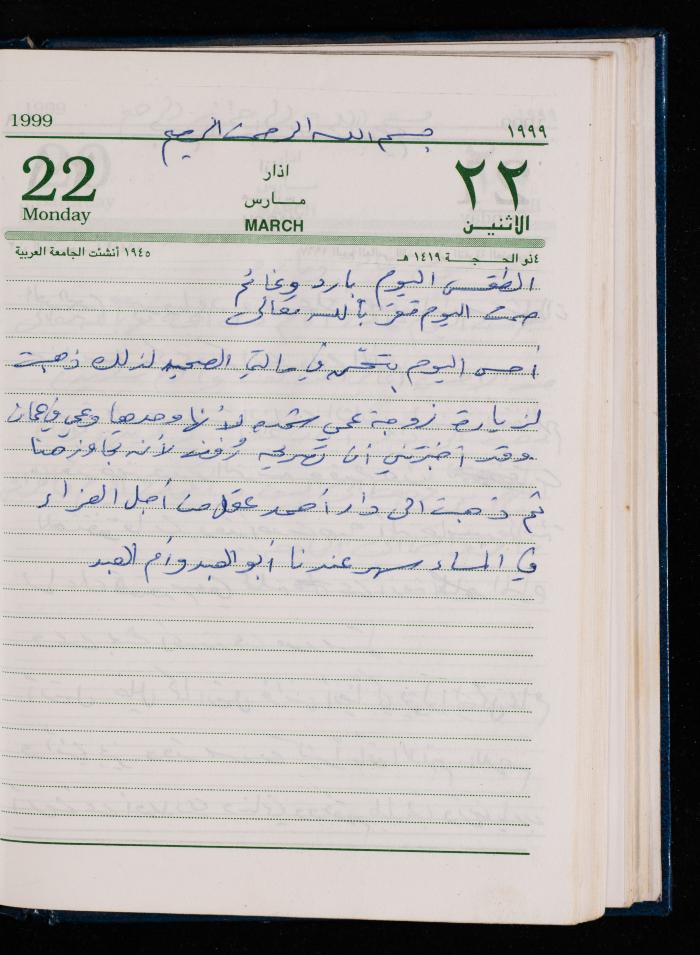 1999
بسم الله الرحمن الرحيم
١٩٩٩
22
Monday
اذار
مارس
MARCH
٢٢
الاثنين
١٩٤٥ أنشئت الجامعة العربية
٤ ذو الحجة ١٤١٩ هـ
الطقس اليوم بارد وغائم
صمت اليوم تقرباً لله تعالى
أحس اليوم بتحسن في حالتي الصحية لذلك ذهبت
لزيارة زوجة عمي لأنها وحدها وعمي في عمان
وقد أخبرتني أن تصريحه رُفض لأنه
ثم ذهبت الى دار أحمد عقل من أجل العزاء
في المساء سهر عندنا أبو العبد وأم العبد